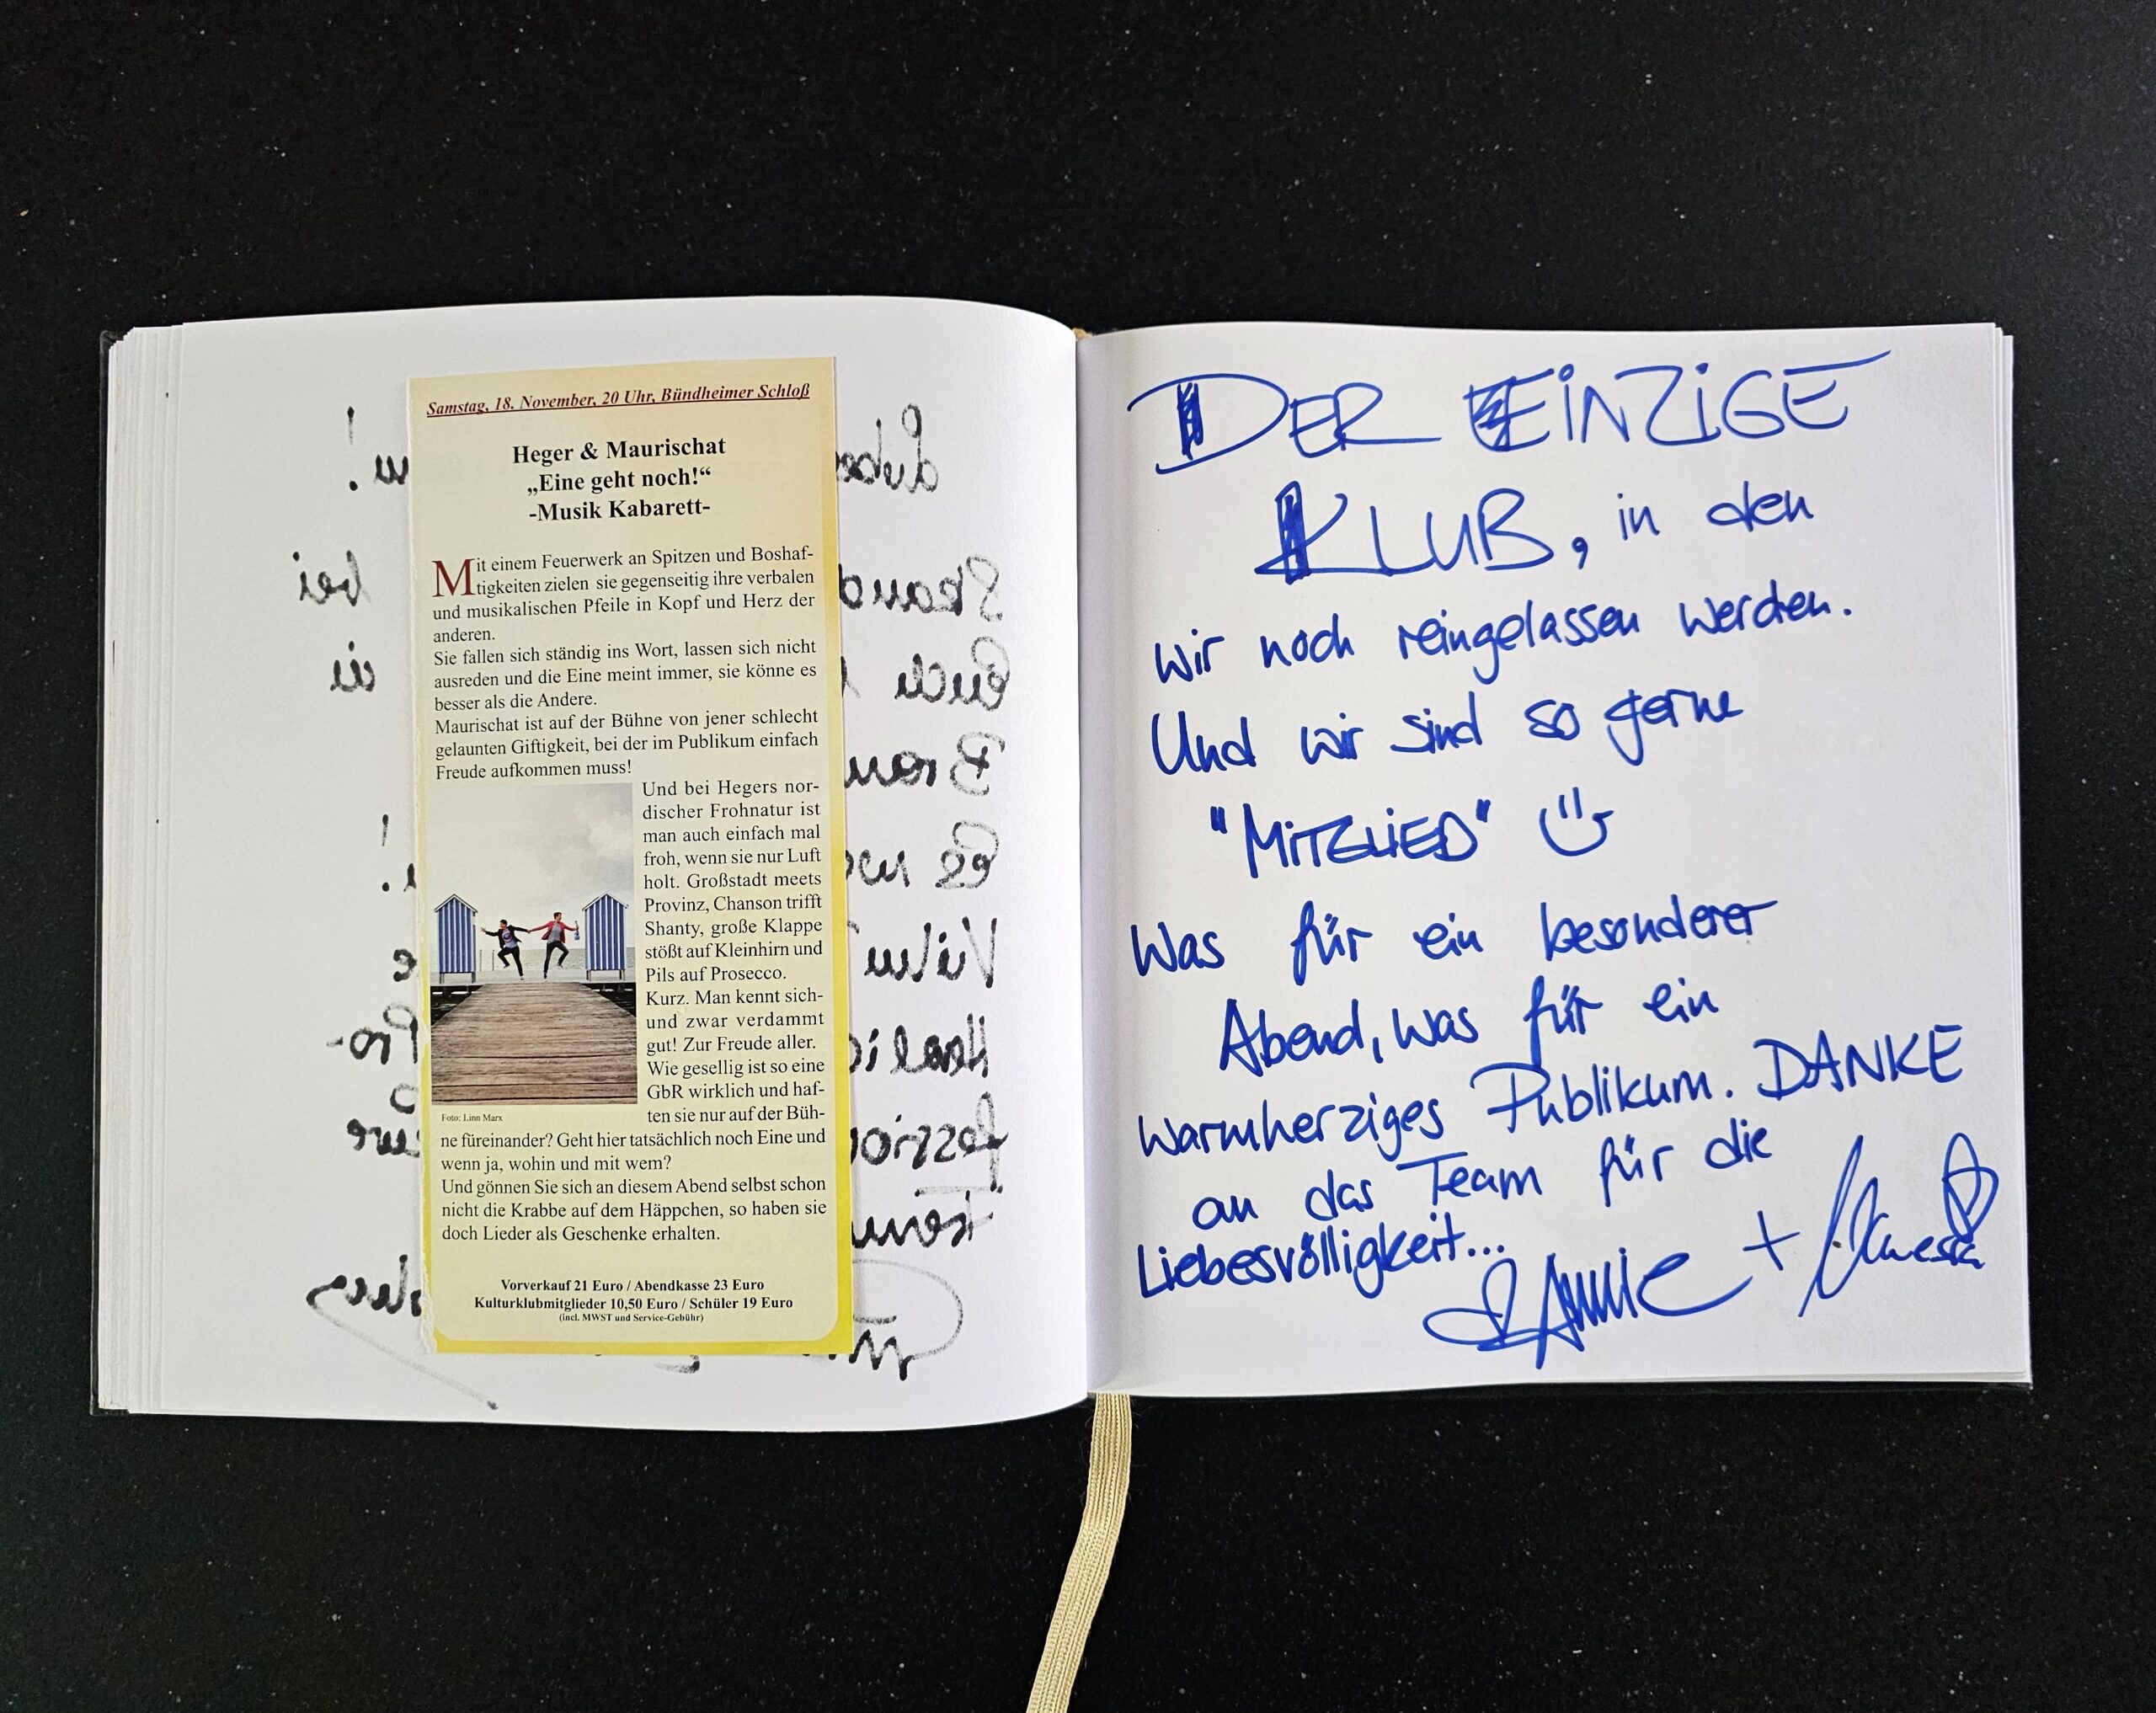 Samstag, 18. November, 20 Uhr, Bündheimer Schloß
Heger & Maurischat
„Eine geht noch!“
-Musik Kabarett-
Mit einem Feuerwerk an Spitzen und Boshaf-
tigkeiten zielen sie gegenseitig ihre verbalen
und musikalischen Pfeile in Kopf und Herz der
anderen.
Sie fallen sich ständig ins Wort, lassen sich nicht
ausreden und die Eine meint immer, sie könne es
besser als die Andere.
Maurischat ist auf der Bühne von jener schlecht
gelaunten Giftigkeit, bei der im Publikum einfach
Freude aufkommen muss!
Und bei Hegers nor-
discher Frohnatur ist
man auch einfach mal
froh, wenn sie nur Luft
holt. Großstadt meets
Provinz, Chanson trifft
Shanty, große Klappe
stößt auf Kleinhirn und
Pils auf Prosecco.
Kurz. Man kennt sich-
und zwar verdammt
gut! Zur Freude aller.
Wie gesellig ist so eine
GbR wirklich und haf-
ten sie nur auf der Büh-
Foto: Linn Marx
ne füreinander? Geht hier tatsächlich noch Eine und
wenn ja, wohin und mit wem?
Und gönnen Sie sich an diesem Abend selbst schon
nicht die Krabbe auf dem Häppchen, so haben sie
doch Lieder als Geschenke erhalten.
Vorverkauf 21 Euro / Abendkasse 23 Euro
Kulturklubmitglieder 10,50 Euro / Schüler 19 Euro
(incl. MWST und Service-Gebühr)
DER EINZIGE
KLUB, in den
wir noch reingelassen werden.
Und wir sind so gerne
"MITGLIED"
Was für ein besonderer
Abend, was für ein
warmherziges Publikum. DANKE
an das Team für die
Liebesvölligkeit...